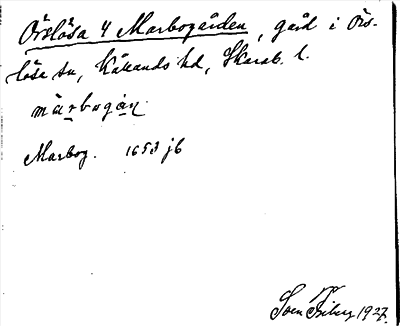 Örslösa 4 Marbogården, gård i Örs-
lösa sn, Kållands hd, Skarab. l.
märbogán
Marbog. 1653 jb
Sven Friberg 1927.